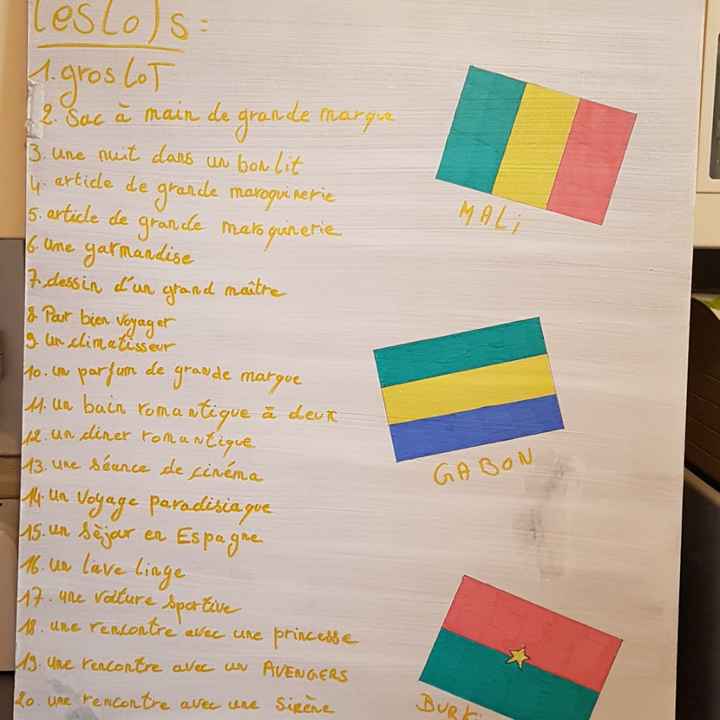 Les Lots:
1. gros LoT
2. Sac à main de grande marque
3. une nuit dans un bon lit
4. article de grande maroquinerie
5. article de grande maroquinerie
6. une garmandise
7. dessin d'un grand maître
8. Pour bien voyager
9. un climatisseur
10. un parfum de grande marque
11. un bain romantique à deux
12. un diner romantique
13. une séance de cinéma
14. un voyage paradisiaque
15. un séjour en Espagne
16. un lave linge
17. une voiture sportive
18. une rencontre avec une princesse
19. une rencontre avec un AVENGERS
20. une rencontre avec une Sirène
MALi
GABON
BURKi